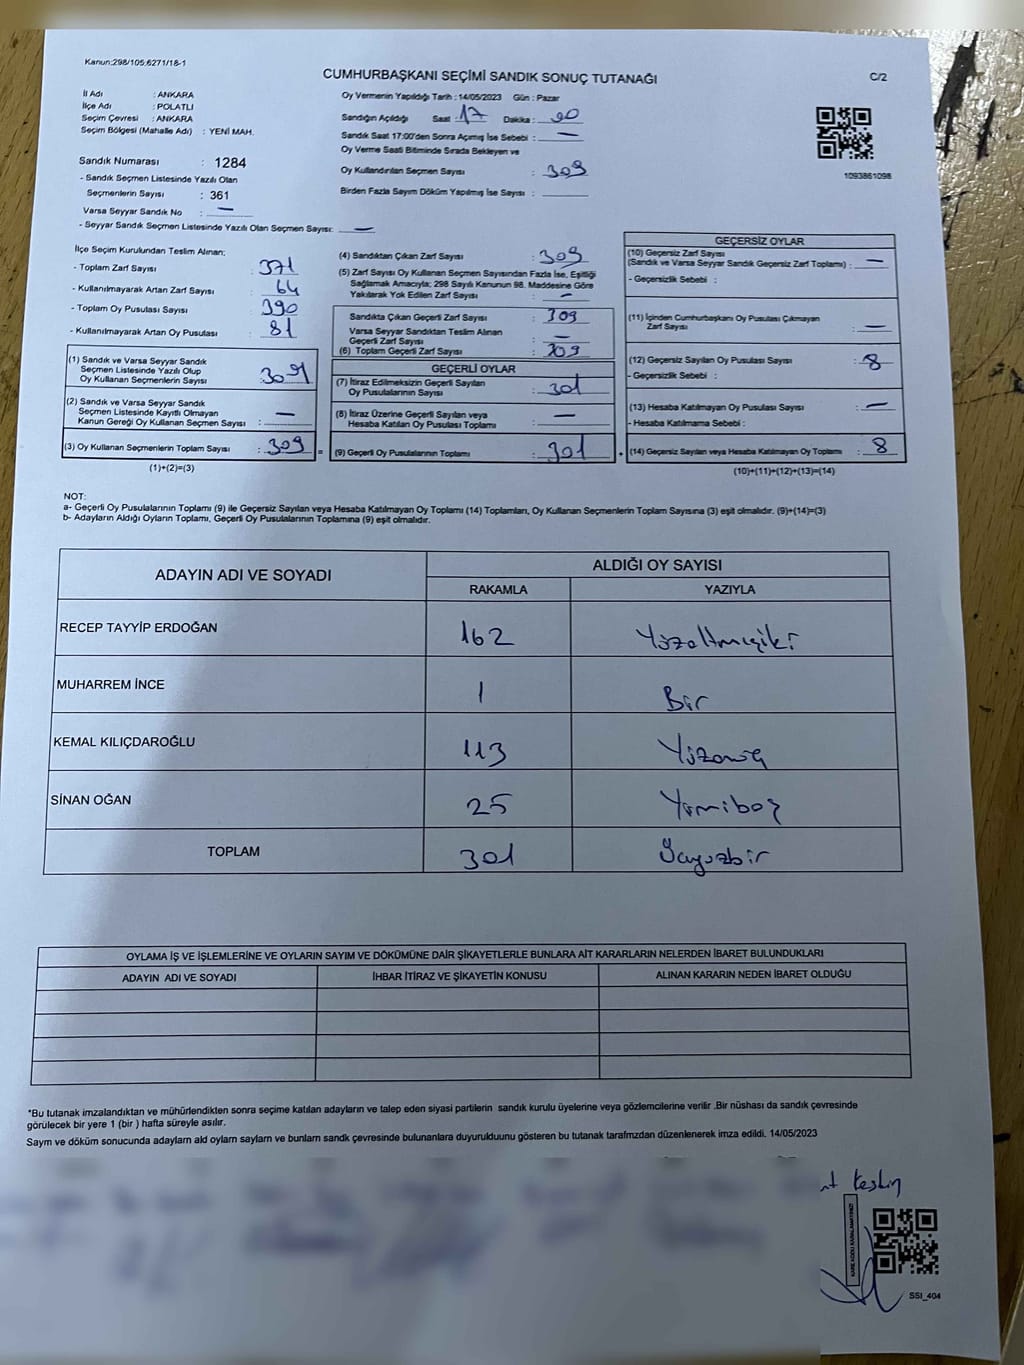 Kanun:298/105;6271/18-1
CUMHURBAŞKANI SEÇİMİ SANDIK SONUÇ TUTANAĞI
C/2
İl Adı : ANKARA
İlçe Adı : POLATLI
Seçim Çevresi : ANKARA
Seçim Bölgesi (Mahalle Adı) : YENİ MAH.
Sandık Numarası : 1284
- Sandık Seçmen Listesinde Yazılı Olan
Seçmenlerin Sayısı : 361
Varsa Seyyar Sandık No : —
- Seyyar Sandık Seçmen Listesinde Yazılı Olan Seçmen Sayısı: —
Oy Vermenin Yapıldığı Tarih : 14/05/2023 Gün : Pazar
Sandığın Açıldığı Saat 17 Dakika : 00
Sandık Saat 17:00'den Sonra Açımış İse Sebebi : —
Oy Verme Saati Bitiminde Sırada Bekleyen ve
Oy Kullandırılan Seçmen Sayısı : 309
Birden Fazla Sayım Döküm Yapılmış İse Sayısı :
1093861098
İlçe Seçim Kurulundan Teslim Alınan;
- Toplam Zarf Sayısı : 371
- Kullanılmayarak Artan Zarf Sayısı : 64
- Toplam Oy Pusulası Sayısı : 390
- Kullanılmayarak Artan Oy Pusulası : 81
(1) Sandık ve Varsa Seyyar Sandık
Seçmen Listesinde Yazılı Olup
Oy Kullanan Seçmenlerin Sayısı : 309
(2) Sandık ve Varsa Seyyar Sandık
Seçmen Listesinde Kayıtlı Olmayan
Kanun Gereği Oy Kullanan Seçmen Sayısı : —
(3) Oy Kullanan Seçmenlerin Toplam Sayısı : 309
(1)+(2)=(3)
(4) Sandıktan Çıkan Zarf Sayısı : 309
(5) Zarf Sayısı Oy Kullanan Seçmen Sayısından Fazla İse, Eşitliği
Sağlamak Amacıyla; 298 Sayılı Kanunun 98. Maddesine Göre
Yakılarak Yok Edilen Zarf Sayısı : —
Sandıkta Çıkan Geçerli Zarf Sayısı : 309
Varsa Seyyar Sandıktan Teslim Alınan
Geçerli Zarf Sayısı : —
(6) Toplam Geçerli Zarf Sayısı : 309
GEÇERLİ OYLAR
(7) İtiraz Edilmeksizin Geçerli Sayılan
Oy Pusulalarının Sayısı : 301
(8) İtiraz Üzerine Geçerli Sayılan veya
Hesaba Katılan Oy Pusulası Toplamı : —
= (9) Geçerli Oy Pusulalarının Toplamı : 301
GEÇERSİZ OYLAR
(10) Geçersiz Zarf Sayısı
(Sandık ve Varsa Seyyar Sandık Geçersiz Zarf Toplamı) : —
- Geçersizlik Sebebi :
(11) İçinden Cumhurbaşkanı Oy Pusulası Çıkmayan
Zarf Sayısı : —
(12) Geçersiz Sayılan Oy Pusulası Sayısı : 8
- Geçersizlik Sebebi :
(13) Hesaba Katılmayan Oy Pusulası Sayısı : —
- Hesaba Katılmama Sebebi :
+ (14) Geçersiz Sayılan veya Hesaba Katılmayan Oy Toplamı : 8
(10)+(11)+(12)+(13)=(14)
NOT:
a- Geçerli Oy Pusulalarının Toplamı (9) ile Geçersiz Sayılan veya Hesaba Katılmayan Oy Toplamı (14) Toplamları, Oy Kullanan Seçmenlerin Toplam Sayısına (3) eşit olmalıdır. (9)+(14)=(3)
b- Adayların Aldığı Oyların Toplamı, Geçerli Oy Pusulalarının Toplamına (9) eşit olmalıdır.
ADAYIN ADI VE SOYADI ALDIĞI OY SAYISI
RAKAMLA YAZIYLA
RECEP TAYYİP ERDOĞAN 162 Yüzaltmışiki
MUHARREM İNCE 1 Bir
KEMAL KILIÇDAROĞLU 113 Yüzonüç
SİNAN OĞAN 25 Yirmibeş
TOPLAM 301 Üçyüzbir
OYLAMA İŞ VE İŞLEMLERİNE VE OYLARIN SAYIM VE DÖKÜMÜNE DAİR ŞİKAYETLERLE BUNLARA AİT KARARLARIN NELERDEN İBARET BULUNDUKLARI
ADAYIN ADI VE SOYADI İHBAR İTİRAZ VE ŞİKAYETİN KONUSU ALINAN KARARIN NEDEN İBARET OLDUĞU
*Bu tutanak imzalandıktan ve mühürlendikten sonra seçime katılan adayların ve talep eden siyasi partilerin sandık kurulu üyelerine veya gözlemcilerine verilir .Bir nüshası da sandık çevresinde
görülecek bir yere 1 (bir ) hafta süreyle asılır.
Sayım ve döküm sonucunda adayların ald oyların sayların ve bunların sandk çevresinde bulunanlara duyurulduunu gösteren bu tutanak tarafmzdan düzenlenerek imza edildi. 14/05/2023
Keskin
KARE KODU KARALAMAYINIZ!
SSI_404